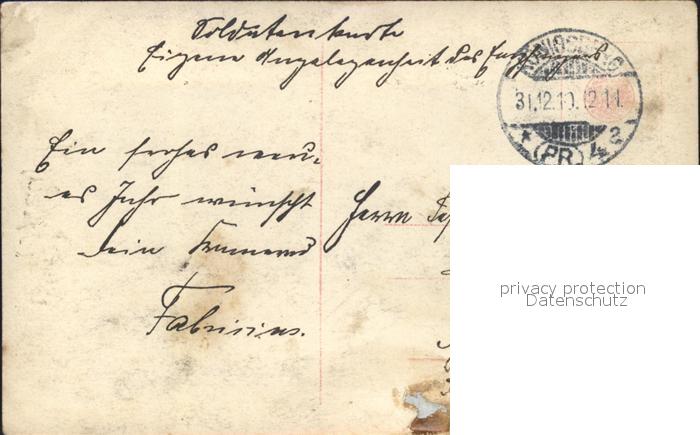 Soldatenkarte
Eigene Angelegenheit des Empfängers
31.12.10. 12-1 N.
* (PR) 4 a
Ein frohes neu-
es Jahr wünscht
Dein Kamerad
Fabricius.
Herrn
privacy protection
Datenschutz